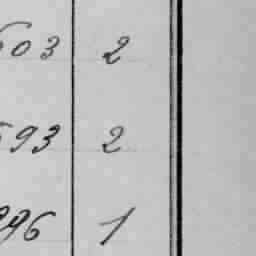 603 2
593 2
296 1